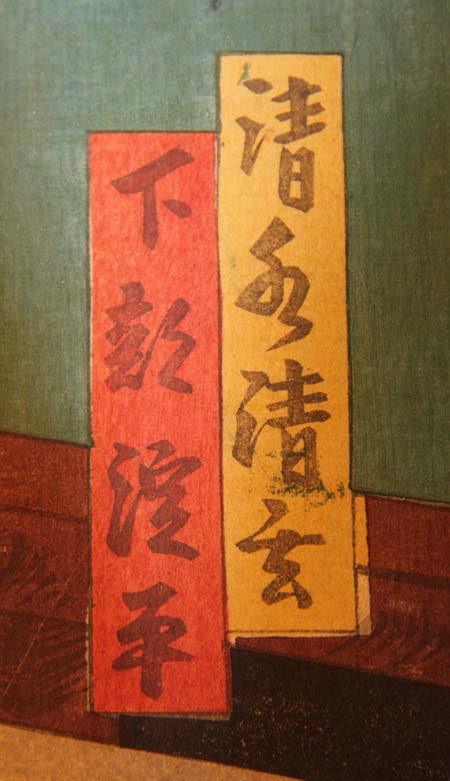 清水清玄
下部淀平